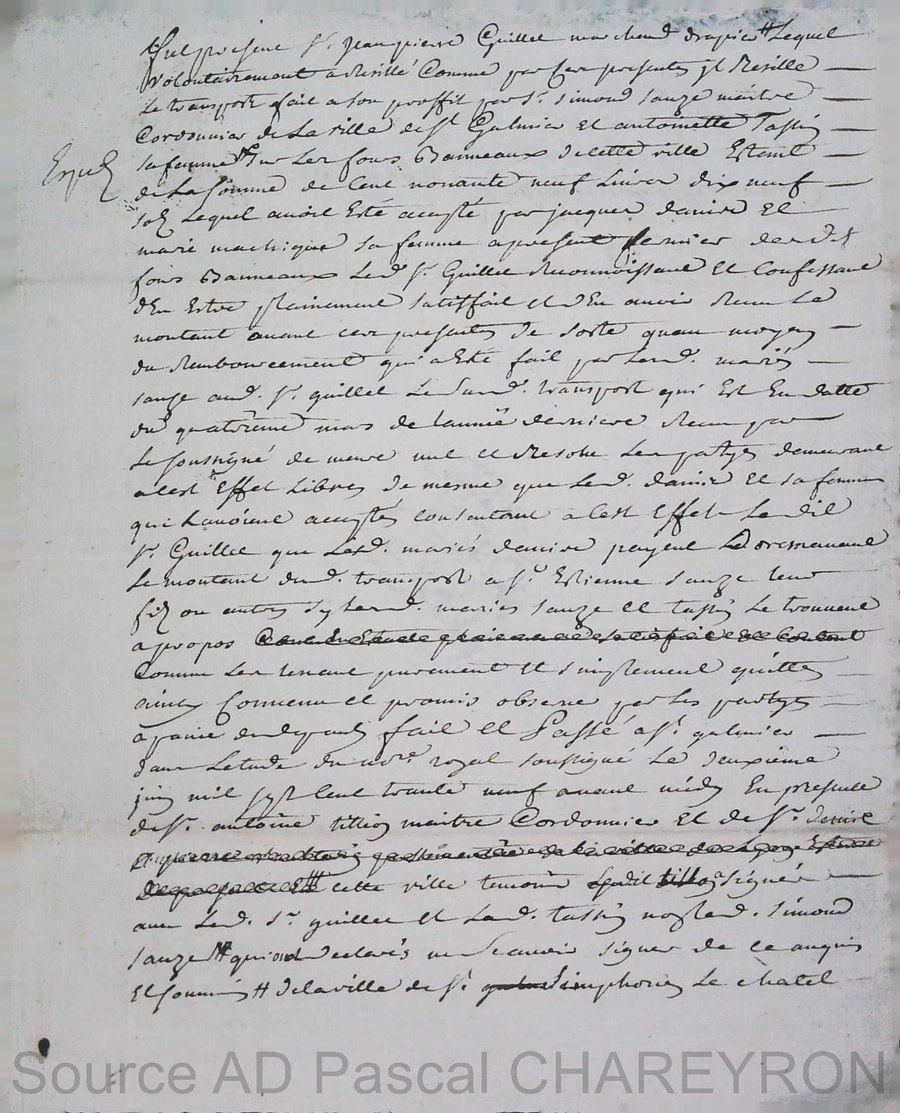 fut présent Sr. Jean pierre Guillet marchand drapier # Lequel
volontairement a Resillé Comme par Ces presentes jl Resille
Le transport fait a son proffit par Sr. simond sauze maitre
Cordonnier de La ville de St Galmier Et antoinette Tassy
sa femme sur Les fours Banneaux de cette ville Estant
de La somme de Cent nonante neuf Livres dix neuf
sols Lequel avoit Esté accepté par jacques danire Et
marie sa femme a present fermier desd. t
fours Banneaux Led. Sr. Guillet Reconnoissant Et Confessant
d'En Estre plainement satisffait Et d'En avoir Receu Le
montant avant ces presentes de sorte quau moyen
du Rembourcement qui a Esté fait par Lesd. mariés
sauze aud. Sr. guillet Le Susd. transport qui Est En datte
du quatrieme mars de Lannée derniere Receu par
Le soussigné demeure nul et Resolu Les partyes demeurant
a cest Effet Libres de mesme que Led. danire Et sa femme
qui Lavoient accepté consentant a cest Effet Le dit
Sr. Guillet que Lesd. mariés danire payent Doresnavant
Le montant dud. transport a Sr. Estienne sauze Leur
fils ou autres sy Lesd. mariés sauze Et tassy Le trouvent
a propos
Comme Les tenant purement Et simplement quittes
ainsy Convenu et promis observé par Les partyes
a paine de depans fait Et Passé a St. galmier
dans Letude du nore. royal soussigné Le deuxieme
juin mil sept Cent trante neuf avant midy En presence
de Sr. antoine tillion maitre Cordonnier Et de Sr. denire
cette ville temoins signés
avec Led. Sr. guillet Et Lad. tassy non Led. simond
sauze # qui ont declarés ne scavoir signer de ce anquis
Et sommés # de la ville de St. simphorien Le chatel
Source AD Pascal CHAREYRON